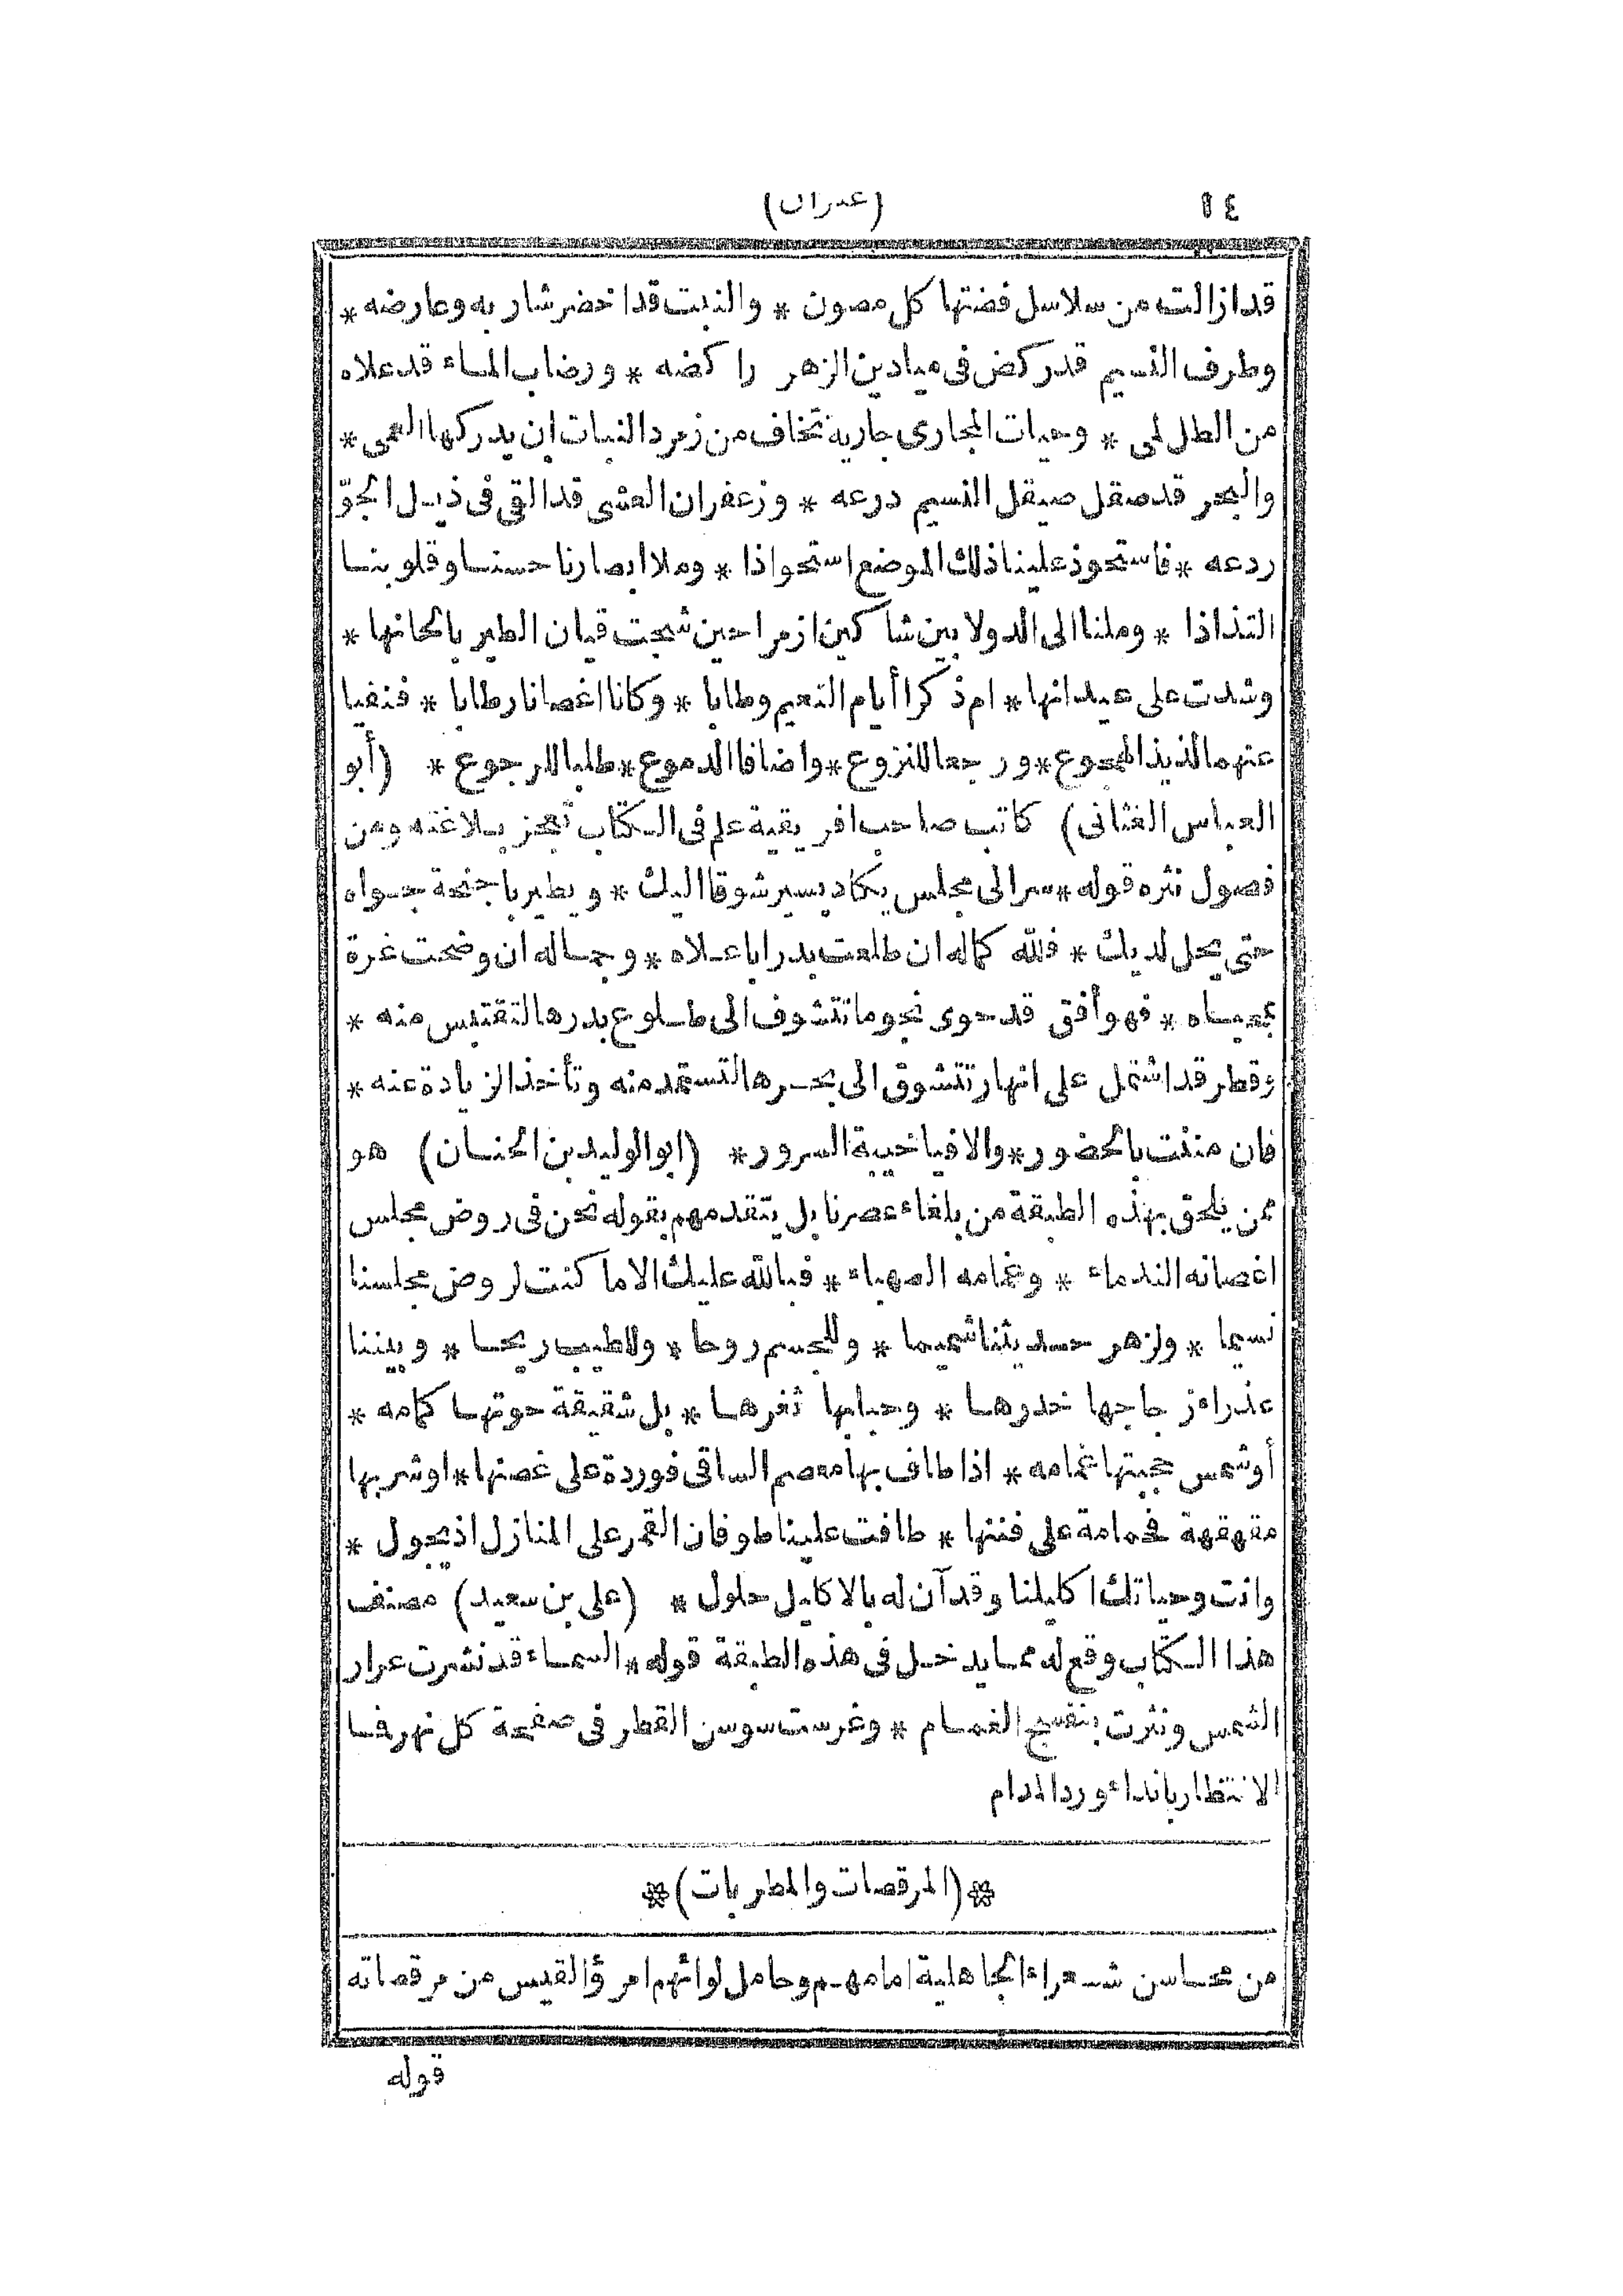 ١٤ (عنوان)
قد ازالت من سلاسل فضتها كل مصون * والنبت قد اخضر شاربه وعارضه *
وطرف النسيم قد ركض فى ميادين الزهر راكضه * ورضاب الماء قد علاه
من الظل لمى * وحيات المجارى جارية تخاف من زمرد النبات ان يدركها العمى *
والبحر قد صقل صيقل النسيم درعه * وزعفران العشى قد القى فى ذيل الجوّ
ردعه * فاستحوذ علينا ذلك الموضع استحواذا * وملا ابصارنا حسنا وقلوبنا
التذاذا * وملنا الى الدولابين شاكين ازمرا حين شجت قيان الطير بالحانها *
وشدت على عيدانها * ام ذكرا أيام النعيم وطابا * وكانا اغصانا رطابا * فنفيا
عنهما لذيذ الهجوع * ورجعا للنزوع * واضافا الدموع * طلبا للرجوع * (أبو
العباس الغثانى) كاتب صاحب افريقية علم فى الكتاب تعجز بلاغته ومن
فصول نثره قوله * سر الى مجلس يكاد يسير شوقا اليك * ويطير باجنحة جواه
حتى يحل لديك * فلله كماله ان طلعت بدرا باعلاه * وجماله ان وضحت غرة
بمحياه * فهو أفق قد حوى نجوما تتشوف الى طلوع بدرها لتقتبس منه *
وقطر قد اشتمل على انهار تتشوق الى بحرها لتستمد منه وتأخذ الزيادة عنه *
فان مننت بالحضور * والا فيا خيبة السرور * (ابو الوليد بن الجنان) هو
ممن يلحق بهذه الطبقة من بلغاء عصرنا بل يتقدمهم بقوله نحن فى روض مجلس
اغصانه الندماء * وغمامه الصهباء * فبالله عليك الا ما كنت لروض مجلسنا
نسيما * ولزهر حديثنا شميما * وللجسم روحا * وللطيب ريحا * وبيننا
عذراء زجاجها خدرها * وحبابها ثغرها * بل شقيقة حوتها كمامه *
أو شمس حجبتها غمامه * اذا طاف بها معصم الساقى فوردة على غصنها * او شربها
مقهقهة فحمامة على فننها * طافت علينا طوفان القمر على المنازل اذ يجول *
وانت وحياتك اكليلنا وقد آن له بالاكليل حلول * (على بن سعيد) مصنف
هذا الكتاب وقع له مما يدخل فى هذه الطبقة قوله * السماء قد نشرت عرار
الشمس ونثرت بنفسج الغمام * وغرست سوسن القطر فى صفحة كل نهر فما
الانتظار باندا ء ورد المدام
*(المرقصات والمطربات)*
من محاسن شعراء الجاهلية امامهم وحامل لوائهم امرؤ القيس من مرقصاته
قوله